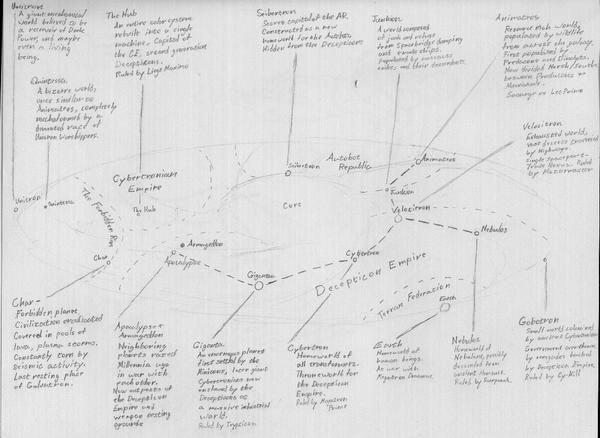 Unicron
A giant mechanised
world believed to be
a reservoir of Dark
Power, and maybe
even a living
being.
Quintessa
A bizarre world,
once similar to
Animatros, completely
by a
race of
Unicron Worshippers.
The Hub
An entire solar system
rebuilt into a single
machine. Capital of
the CE, second generation
Decepticons.
Ruled by Liege Maximo
Sibertron
Secret capital of the AR.
Constructed as a new
homeworld for the Autobots,
Hidden from the Decepticons
Junkion
A world composed
of junk and refuse
from spacebridge dumping
and
Populated by outcasts
and their descendants.
Animatros
world,
populated by wildlife
from across the galaxy.
First populated by
Predacons and Dinobots.
Now divided North/South
between Predacons or
Leo Prime
Velocitron
Exhausted world,
vast deserts crossed
by highways.
Single spaceport-
Ruled
by
Autobot
Republic
Sibertron
Animatros
Junkion
Velocitron
Cybercronian
Empire
Unicron
Quintessa
The Hub
The Forbidden
Core
Char
Armageddon
Apocalypse
Gigantia
Cybertron
Nebulos
Decepticon Empire
Terran Federation
Earth
Char-
Forbidden planet,
Civilization eradicated
Covered in pools of
lava, plasma storms.
Constantly torn by
seismic activity.
Last resting place
of Galvatron.
Apocalypse +
Armageddon
Neighboring
planets razed
Millennia ago
in war with
each other.
Now outposts of
the Decepticon
Empire and
weapon testing
grounds
Gigantia
An enormous planet
first settled by the
Minicons, later giant
Cybertronians now
enslaved by the
Decepticons as
a massive industrial
world.
Ruled by Trypticon
Cybertron
Homeworld of
all transformers.
Throneworld for
the Decepticon
Empire.
Ruled by Megatron
Prime
Earth
Homeworld of
human beings.
At war with
Nebulos
Homeworld of
Nebulans, possibly
descended from
ancient Humans.
Ruled by
Gobotron
Small world colonised
by ancient Cybertronians
Government overthrown
by renegades backed
by Decepticon Empire,
Ruled by Cy-Kill